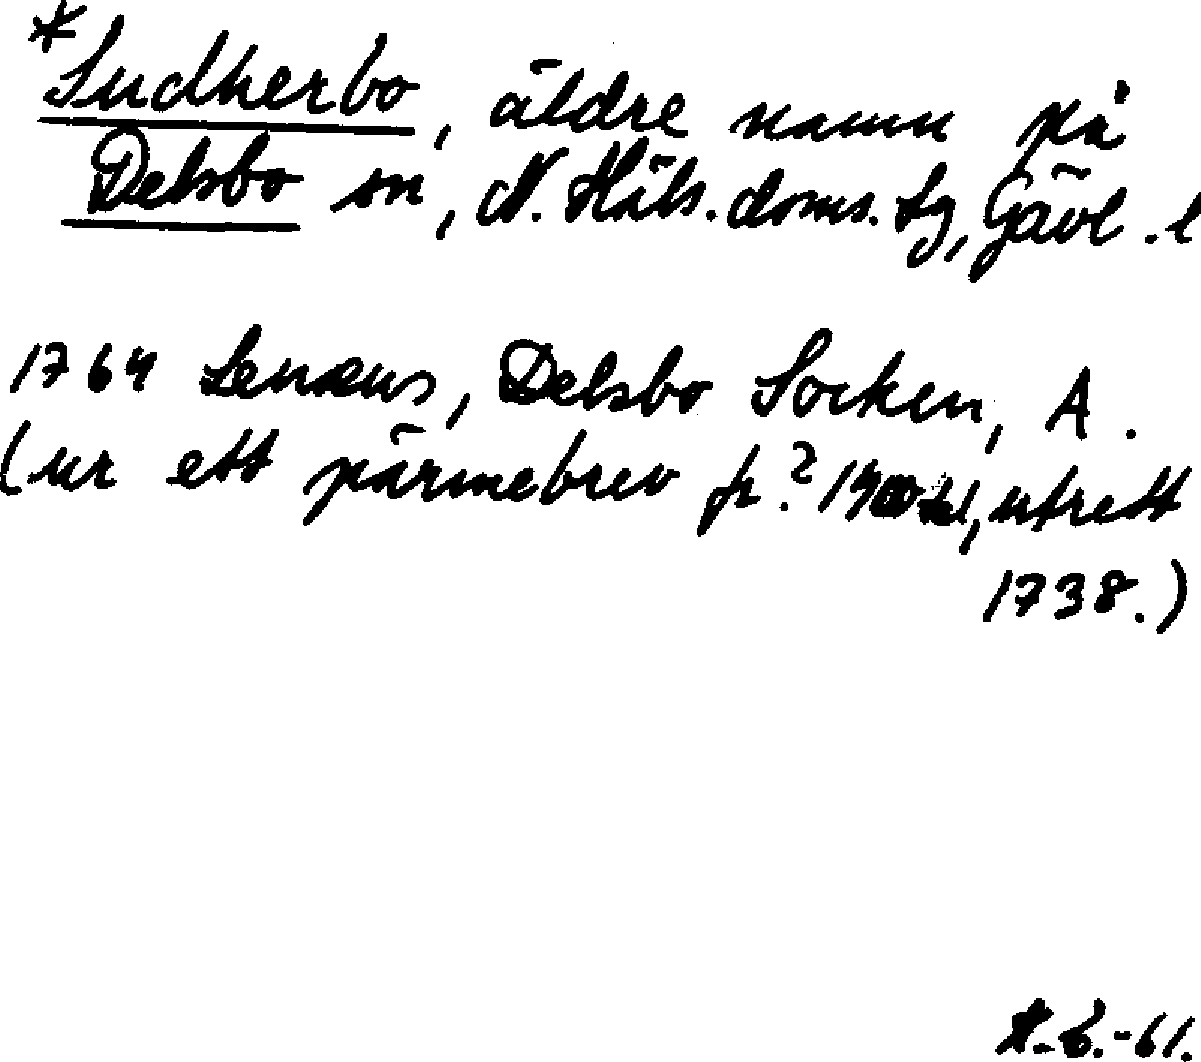 *Sudherbo, äldre namn på
Delsbo sn, N. Häls. doms. tg, Gävl. l
1764 Lenæus, Delsbo Socken, A.
(ur ett pärmebrev fr.? 1400-tal, utrett
1738.)
-61.